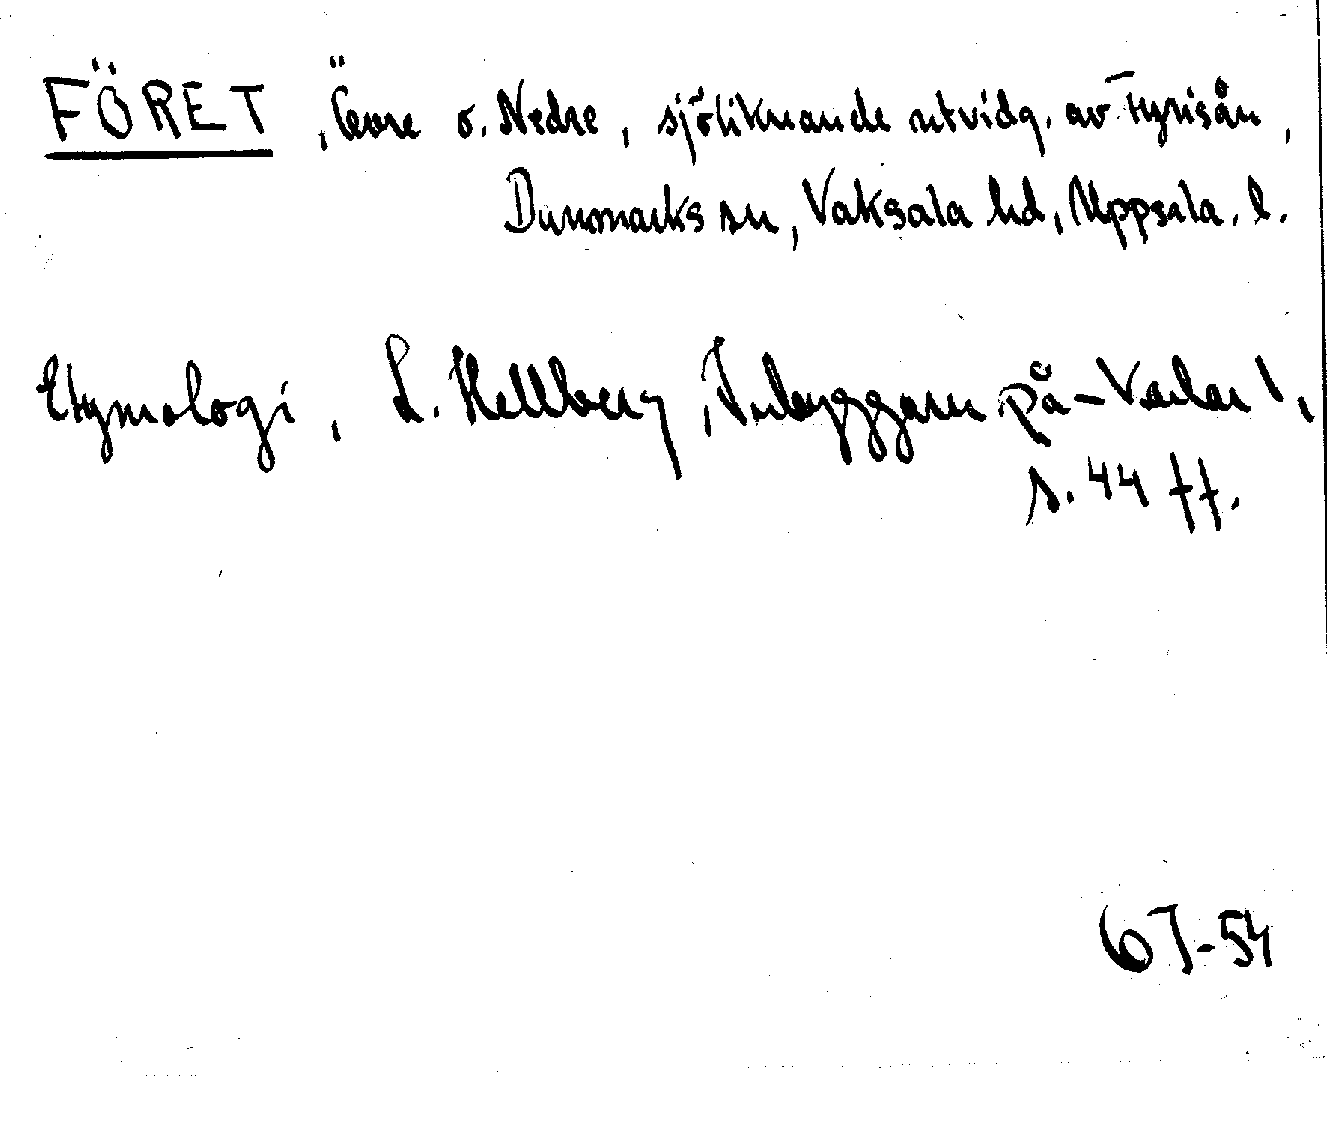 FÖRET, Övre o. Nedre, sjöliknande utvidg. av Fyrisån,
Danmarks sn, Vaksala hd, Uppsala. l.
Etymologi, L. Hellberg, Inbyggarn. på -Karlar 1,
s. 44 ff.
67-54